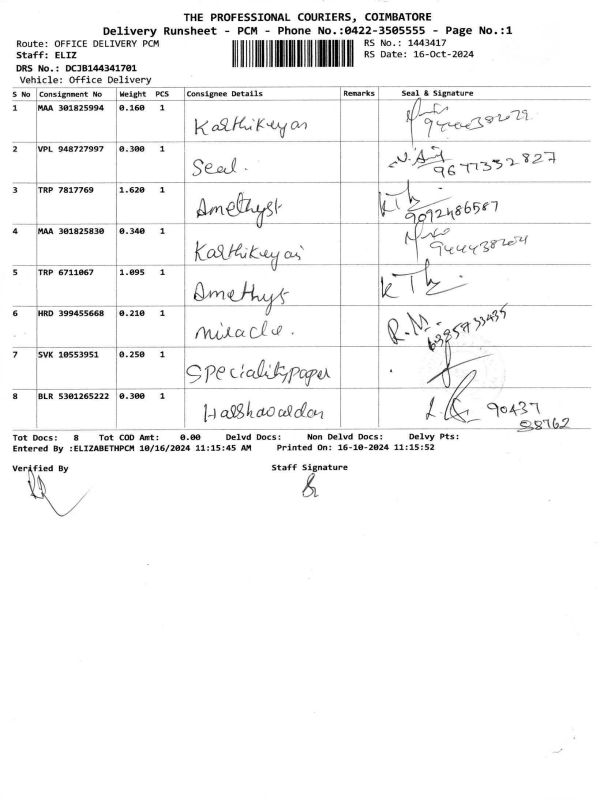 THE PROFESSIONAL COURIERS, COIMBATORE
Delivery Runsheet - PCM - Phone No.:0422-3505555 - Page No.:1
Route: OFFICE DELIVERY PCM RS No.: 1443417
Staff: ELIZ RS Date: 16-Oct-2024
DRS No.: DCJB144341701
Vehicle: Office Delivery
S No Consignment No Weight PCS Consignee Details Remarks Seal & Signature
1 MAA 301825994 0.160 1 Karthikeyan
2 VPL 948727997 0.300 1 Seal. 9677332827
3 TRP 7817769 1.620 1 Amethyst 9092486587
4 MAA 301825830 0.340 1 Karthikeyan
5 TRP 6711067 1.095 1 Amethyst
6 HRD 399455668 0.210 1 miracle. R.M.
7 SVK 10553951 0.250 1 Specialitypaper
8 BLR 5301265222 0.300 1 90437
58762
Tot Docs: 8 Tot COD Amt: 0.00 Delvd Docs: Non Delvd Docs: Delvy Pts:
Entered By :ELIZABETHPCM 10/16/2024 11:15:45 AM Printed On: 16-10-2024 11:15:52
Verified By Staff Signature